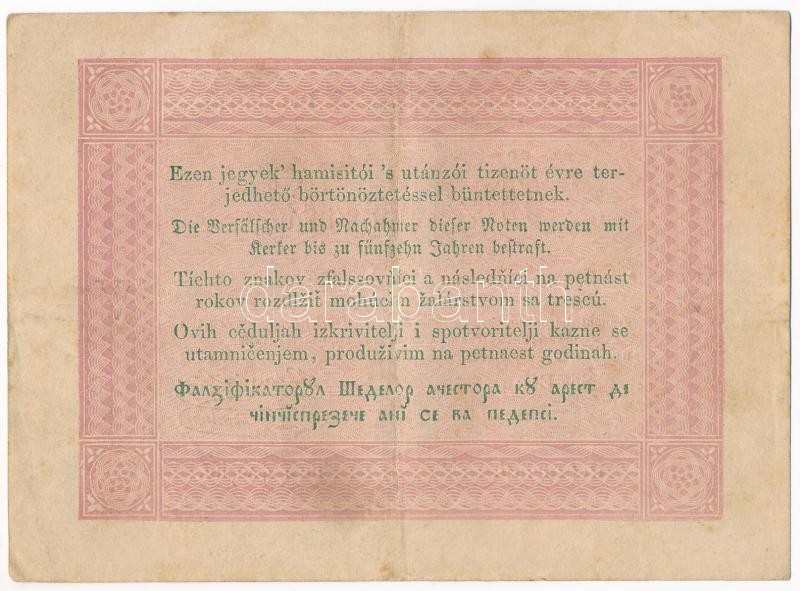 Ezen jegyek' hamisitói 's utánzói tizenöt évre ter-
jedhető börtönöztetéssel büntettetnek.
Die Verfälscher und Nachahmer dieser Noten werden mit
Kerker bis zu fünfzehn Jahren bestraft.
Tíchto znakov zfalssovníci a následňíci na petnást
rokov rozdlžiť mohúcim žalárstvom sa trescú.
darabanth
Ovih cěduljah izkrivitelji i spotvoritelji kazne se
utamničenjem, produživim na petnaest godinah.
Фалꙁіфікаторꙋл Шеделор ачестора кꙋ арест де
чінчіспреꙁече ані се ва педепсі.